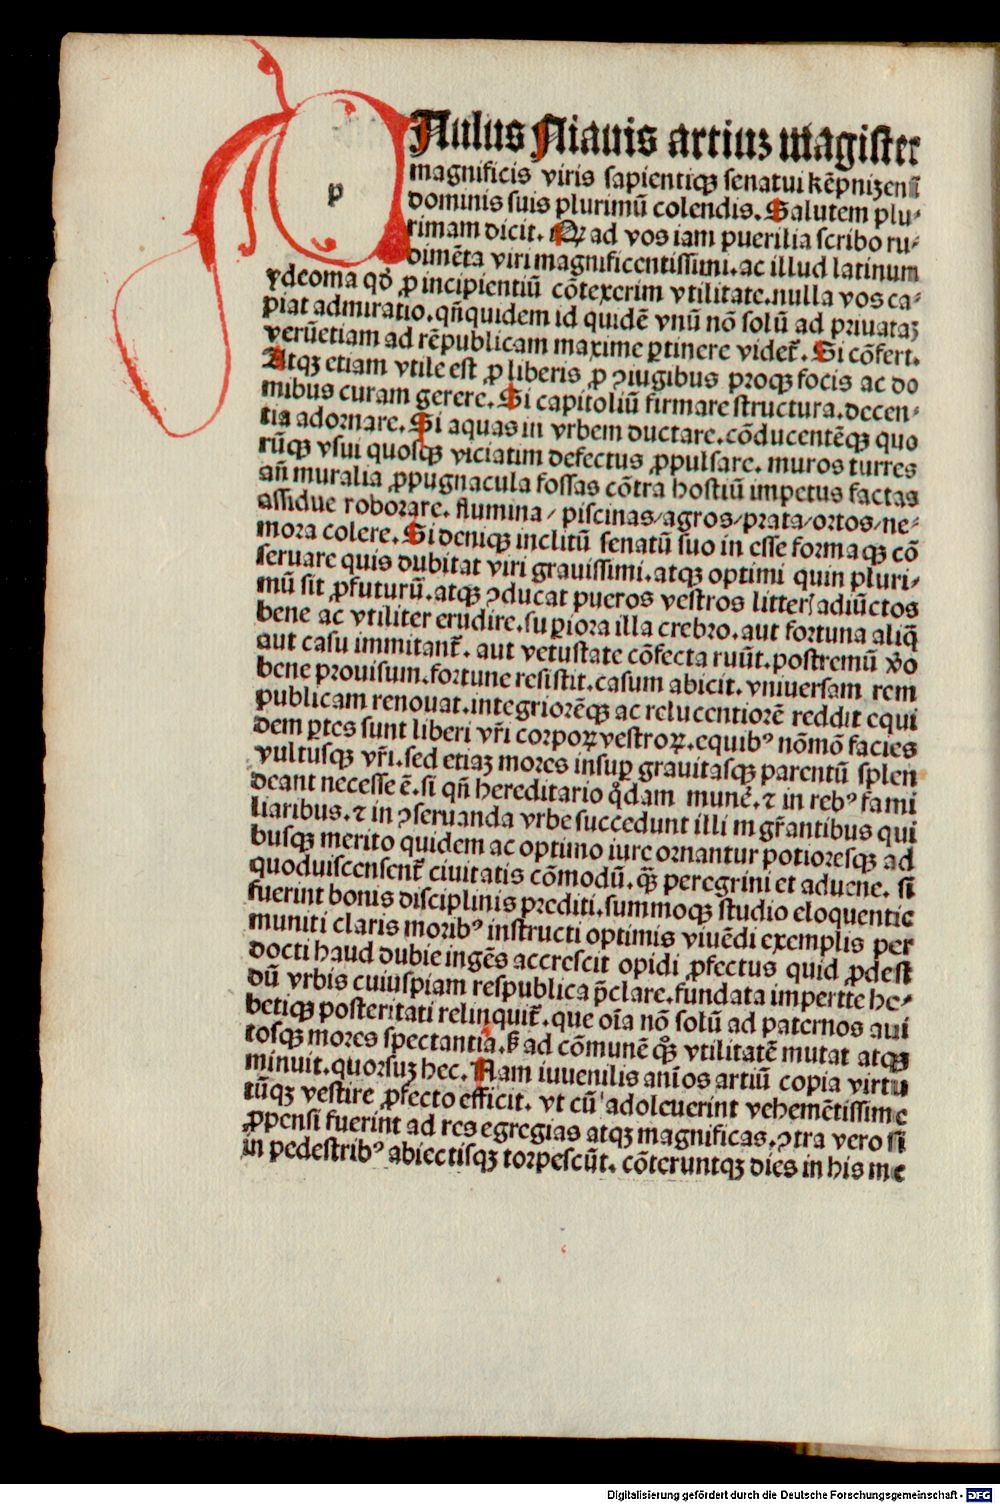 PAulus Niauis artiuʒ magister
magnificis viris sapientiqʒ senatui kēpnizensi
dominis suis plurimū colendis. Salutem plu-
rimam dicit. Qꝛ ad vos iam puerilia scribo ru-
dimēta viri magnificentissimi. ac illud latinum
ydeoma qd̄ ꝓ incipientiū cōtexerim vtilitate. nulla vos ca-
piat admiratio. qn̄quidem id quidē vnū nō solū ad priuataʒ
verūetiam ad rēpublicam maxime ꝑtinere videt᷑. Si cōfert.
Atqʒ etiam vtile est ꝓ liberis ꝓ ꝯiugibus proqʒ focis ac do
mibus curam gerere. Si capitoliū firmare structura. decen-
tia adornare. Si aquas in vrbem ductare. cōducentēqʒ quo
rūqʒ vsui quosqʒ viciatim defectus ꝓpulsare. muros turres
an̄ muralia ꝓpugnacula fossas cōtra hostiū impetus factas
assidue roborare. flumina / piscinas/agros/prata/ortos/ne-
mora colere. Si deniqʒ inclitū senatū suo in esse formaqʒ cō
seruare quis dubitat viri grauissimi. atqʒ optimi quin pluri-
mū sit ꝓfuturū. atqʒ ꝯducat pueros vestros litterꝭ adiūctos
bene ac vtiliter erudire. suꝑiora illa crebro. aut fortuna aliq̄
aut casu immitant᷑. aut vetustate cōfecta ruūt. postremū v̄o
bene prouisum. fortune resistit. casum abicit. vniuersam rem
publicam renouat. integriorēqʒ ac relucentiorē reddit equi
dem ꝑtes sunt liberi vr̄i corporꝝ vestrorꝝ. equibꝰ nōmō facies
vultusqʒ vr̄i. sed etiaʒ mores insuꝑ grauitasqʒ parentū splen
deant necesse ē. si qn̄ hereditario q̊dam munē. ⁊ in rebꝰ fami
liaribus. ⁊ in ꝯseruanda vrbe succedunt illi m gr̄antibus qui
busqʒ merito quidem ac optimo iure ornantur potioresqʒ ad
quoduiscensent᷑ ciuitatis cōmodū. q̄ꝫ peregrini et aduene. si
fuerint bonis disciplinis prediti. summoqʒ studio eloquentie
muniti claris moribꝰ instructi optimis viuēdi exemplis per
docti haud dubie ingēs accrescit opidi ꝓfectus quid ꝓdest
dū vrbis cuiuspiam respublica p̄clare. fundata impertte he-
betiqʒ posteritati relinquit᷑. que oīa nō solū ad paternos aui
tosqʒ mores spectantia. sꝫ ad cōmunē qꝫ vtilitatē mutat atqʒ
minuit. quorsuʒ hec. Nam iuuenilis anīos artiū copia virtu
tūqʒ vestire ꝓfecto efficit. vt cū adoleuerint vehemētissime
ꝓpensi fuerint ad res egregias atqʒ magnificas. ꝯtra vero si
in pedestribꝰ abiectisqʒ torpescūt. cōteruntqʒ dies in his me
Digitalisierung gefördert durch die Deutsche Forschungsgemeinschaft - DFG